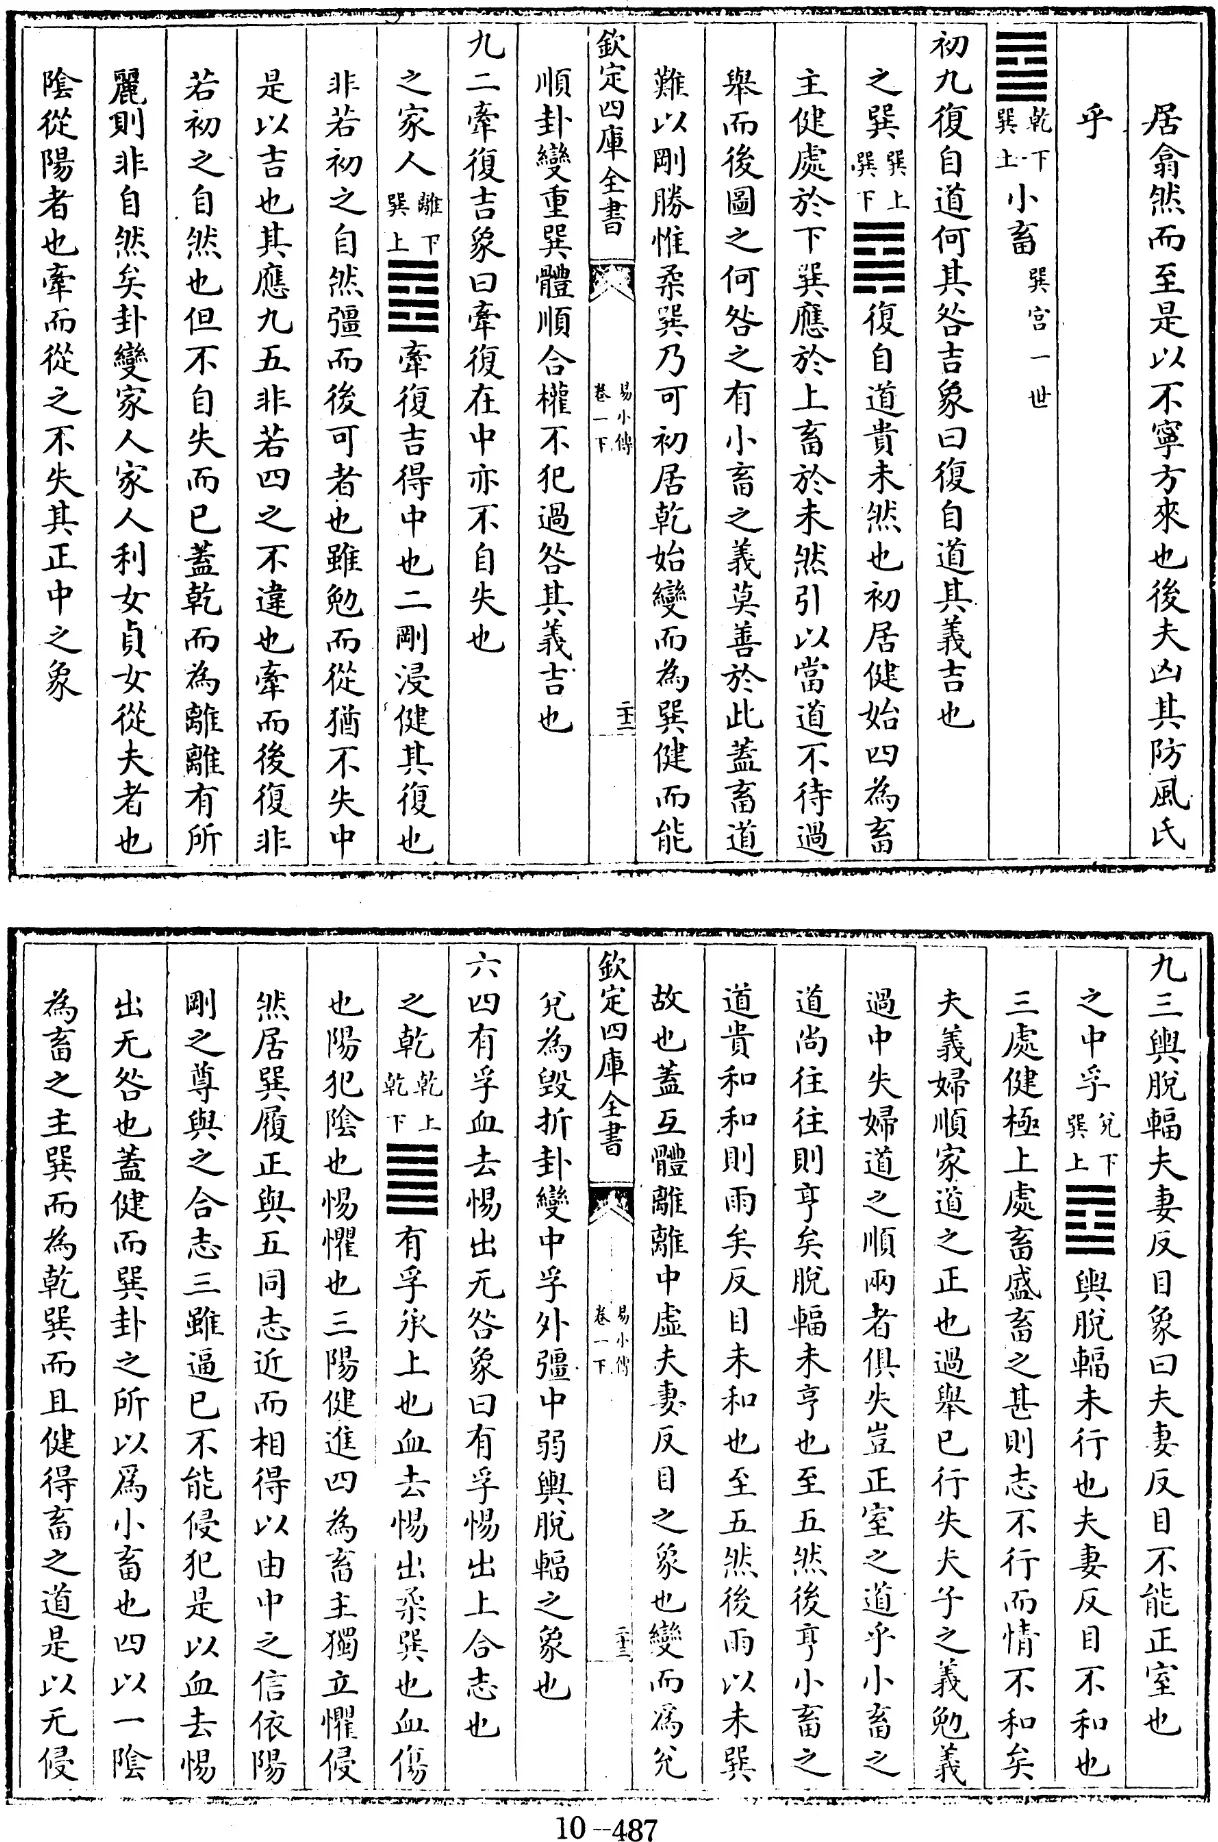 居翕然而至是以不寧方來也後夫凶其防風氏
乎
䷈乾下巽上小畜巽宮一世
初九復自道何其咎吉象曰復自道其義吉也
之巽巽上巽下䷸復自道貴未然也初居健始四為畜
主健處於下巽應於上畜於未然引以當道不待過
舉而後圖之何咎之有小畜之義莫善於此蓋畜道
難以剛勝惟柔巽乃可初居乾始變而為巽健而能
欽定四庫全書
易小傳
卷一下
二十二
順卦變重巽體順合權不犯過咎其義吉也
九二牽復吉象曰牽復在中亦不自失也
之家人離下巽上䷤牽復吉得中也二剛浸健其復也
非若初之自然彊而後可者也雖勉而從猶不失中
是以吉也其應九五非若四之不違也牽而後復非
若初之自然也但不自失而已蓋乾而為離離有所
麗則非自然矣卦變家人家人利女貞女從夫者也
陰從陽者也牽而從之不失其正中之象
九三輿脫輻夫妻反目象曰夫妻反目不能正室也
之中孚兌下巽上䷼輿脫輻未行也夫妻反目不和也
三處健極上處畜盛畜之甚則志不行而情不和矣
夫義婦順家道之正也過舉已行失夫子之義勉義
過中失婦道之順兩者俱失豈正室之道乎小畜之
道尚往往則亨矣脫輻未亨也至五然後亨小畜之
道貴和和則雨矣反目未和也至五然後雨以未巽
故也蓋互體離離中虛夫妻反目之象也變而爲兌
欽定四庫全書
易小傳
卷一下
二十三
兌為毀折卦變中孚外彊中弱輿脫輻之象也
六四有孚血去惕出无咎象曰有孚惕出上合志也
之乾乾上乾下䷀有孚承上也血去惕出柔巽也血傷
也陽犯陰也惕懼也三陽健進四為畜主獨立懼侵
然居巽履正與五同志近而相得以由中之信依陽
剛之尊與之合志三雖逼已不能侵犯是以血去惕
出无咎也蓋健而巽卦之所以爲小畜也四以一陰
為畜之主巽而為乾巽而且健得畜之道是以无侵
10--487